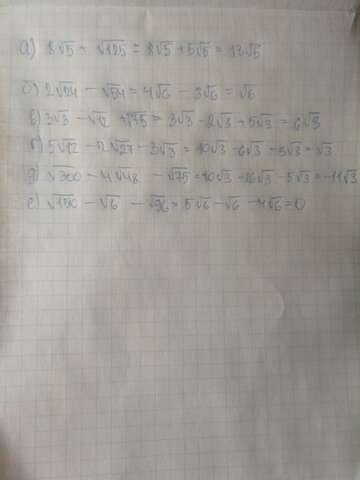 а) 8√5 + √125 = 8√5 + 5√5 = 13√5
б) 2√24 - √54 = 4√6 - 3√6 = √6
в) 3√3 - √12 + √75 = 3√3 - 2√3 + 5√3 = 6√3
г) 5√12 - 2√27 - 3√3 = 10√3 - 6√3 - 3√3 = √3
д) √300 - 4√48 - √75 = 10√3 - 16√3 - 5√3 = -11√3
е) √150 - √6 - √96 = 5√6 - √6 - 4√6 = 0